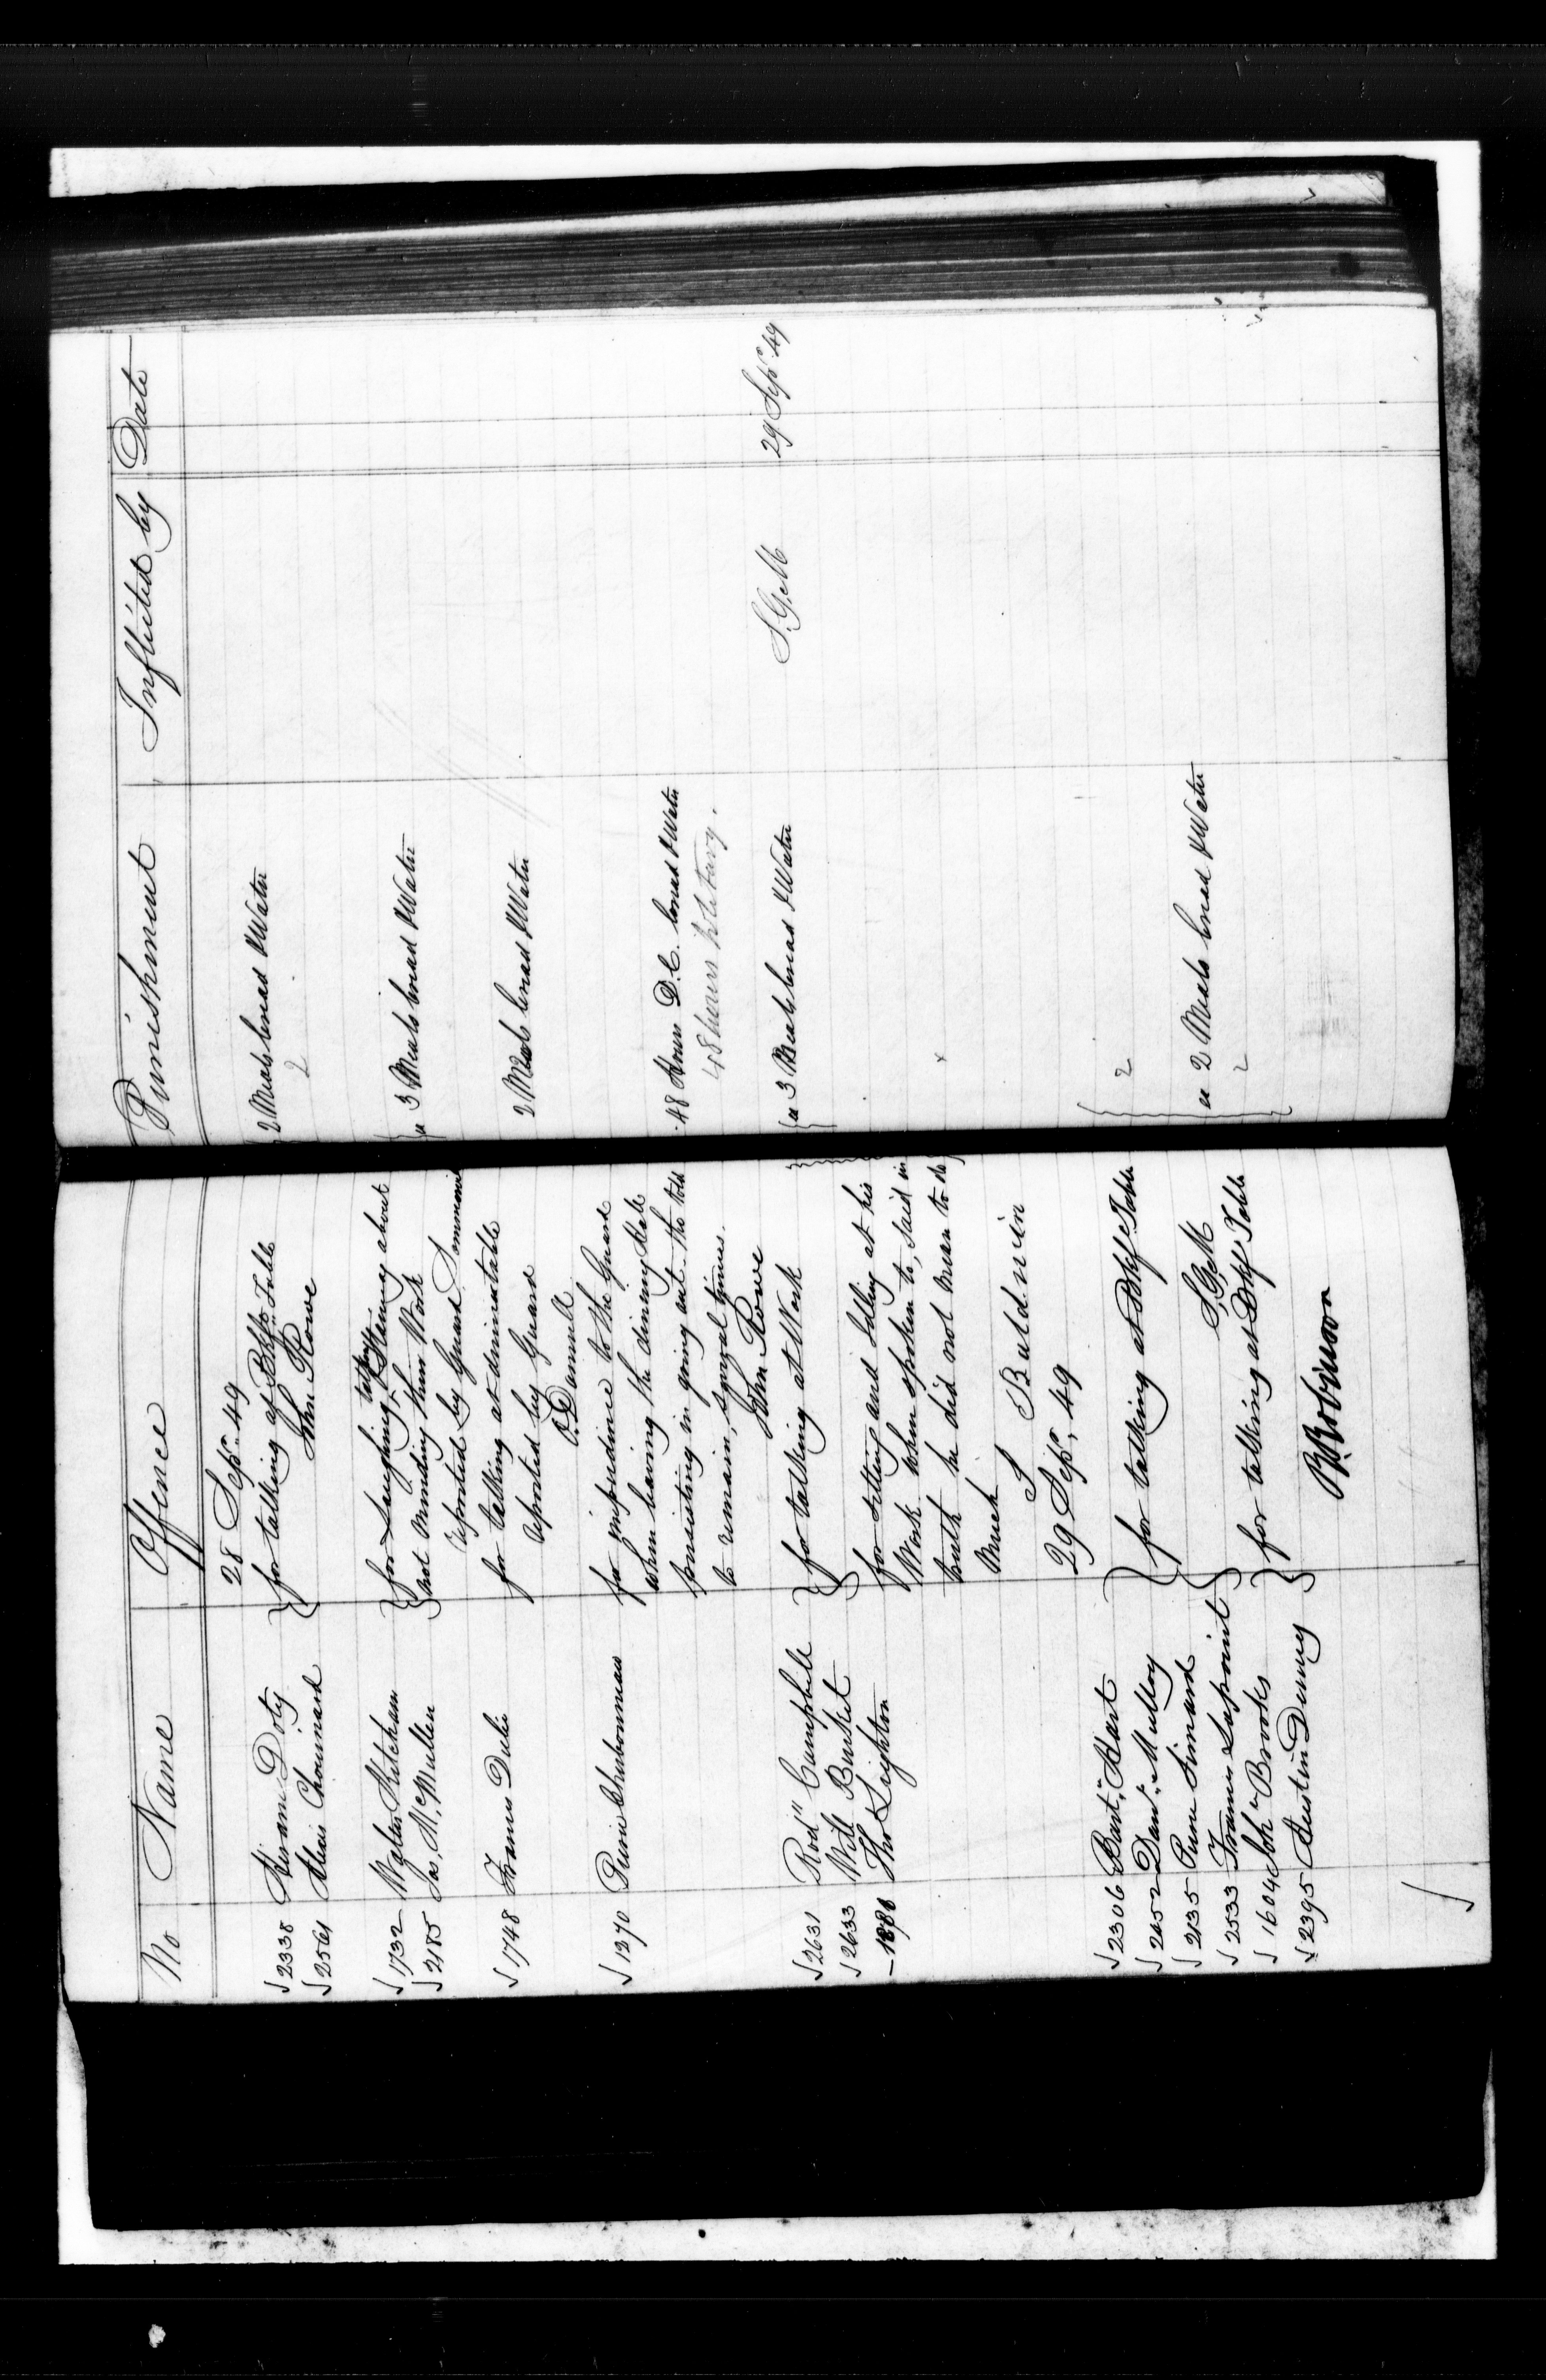 No Name Offence Punishment Inflicted by Date
28 Sepr. 49
2338 Hiram Doty } for talking at Bkfs. Table { 2 Meals bread & Water
2561 Alexis Chouinard John Rowe 2
1732 Walter Ketcham } for Laughing, talking & Staring about
2185 Jas. McMullen not minding their Work { a 3 Meals bread & Water
reported by Guard
1748 Francis Dubé for talking at dinner table 2 Meals bread & Water
reported by Guard
O. Donnell
1270 Pierre Charbonneau for impudence to the Guard
when leaving the dining Hall
persisting in going out tho told 48 Hours D.C. bread & Water
to remain, several times. 48 hours
John Rowe
2631 Rodk Campbell } for talking at Work { a 3 Meals bread & Water S.G.M 29 Sepr 49
2633 Will Burket
Tho Leighton for sitting and Lolling at his
Work when spoken to, said in
truth he did not mean to do
Much
S Baldwin
29 Sepr. 49
2306 Bartw Hart } for talking at Bkfs Table 2
2452 Danl Mulloy
2135 Pierre Simard
2533 Francis Lapoint S,G,M a 2 Meals bread & Water
1604 John Brooks } for talking at Bkfs Table 2
2395 Austin Denny
B Robinson